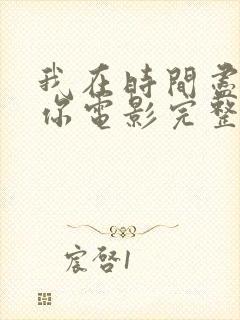 我在時間盡
你電影完整
宸啓1